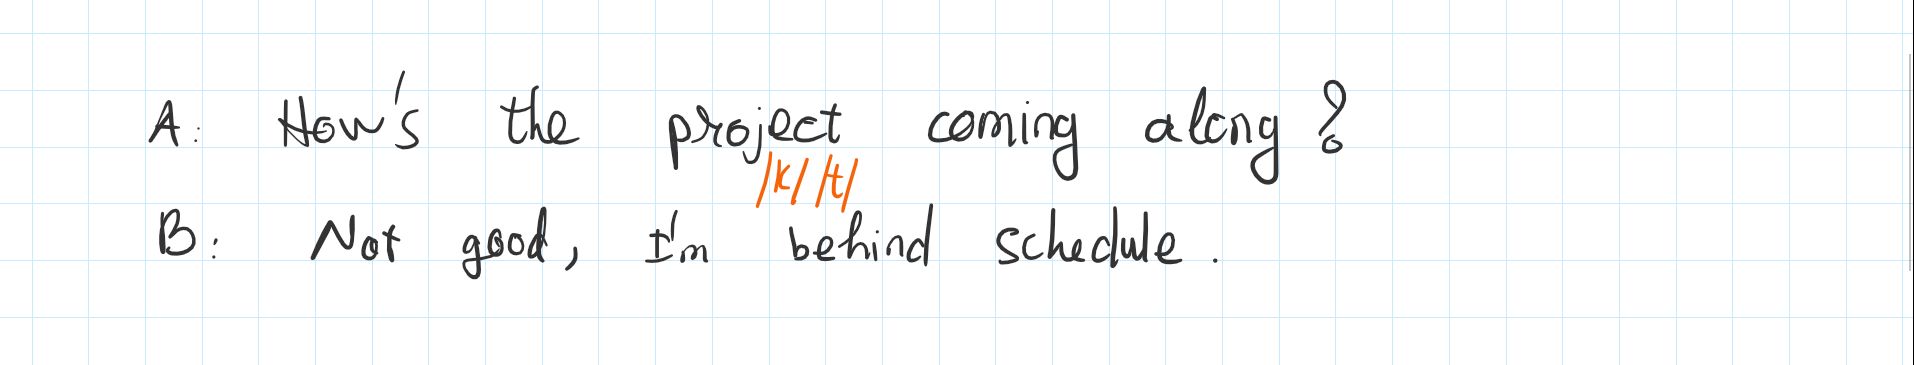 A: How's the project coming along?
/k/ /t/
B: Not good, I'm behind schedule.